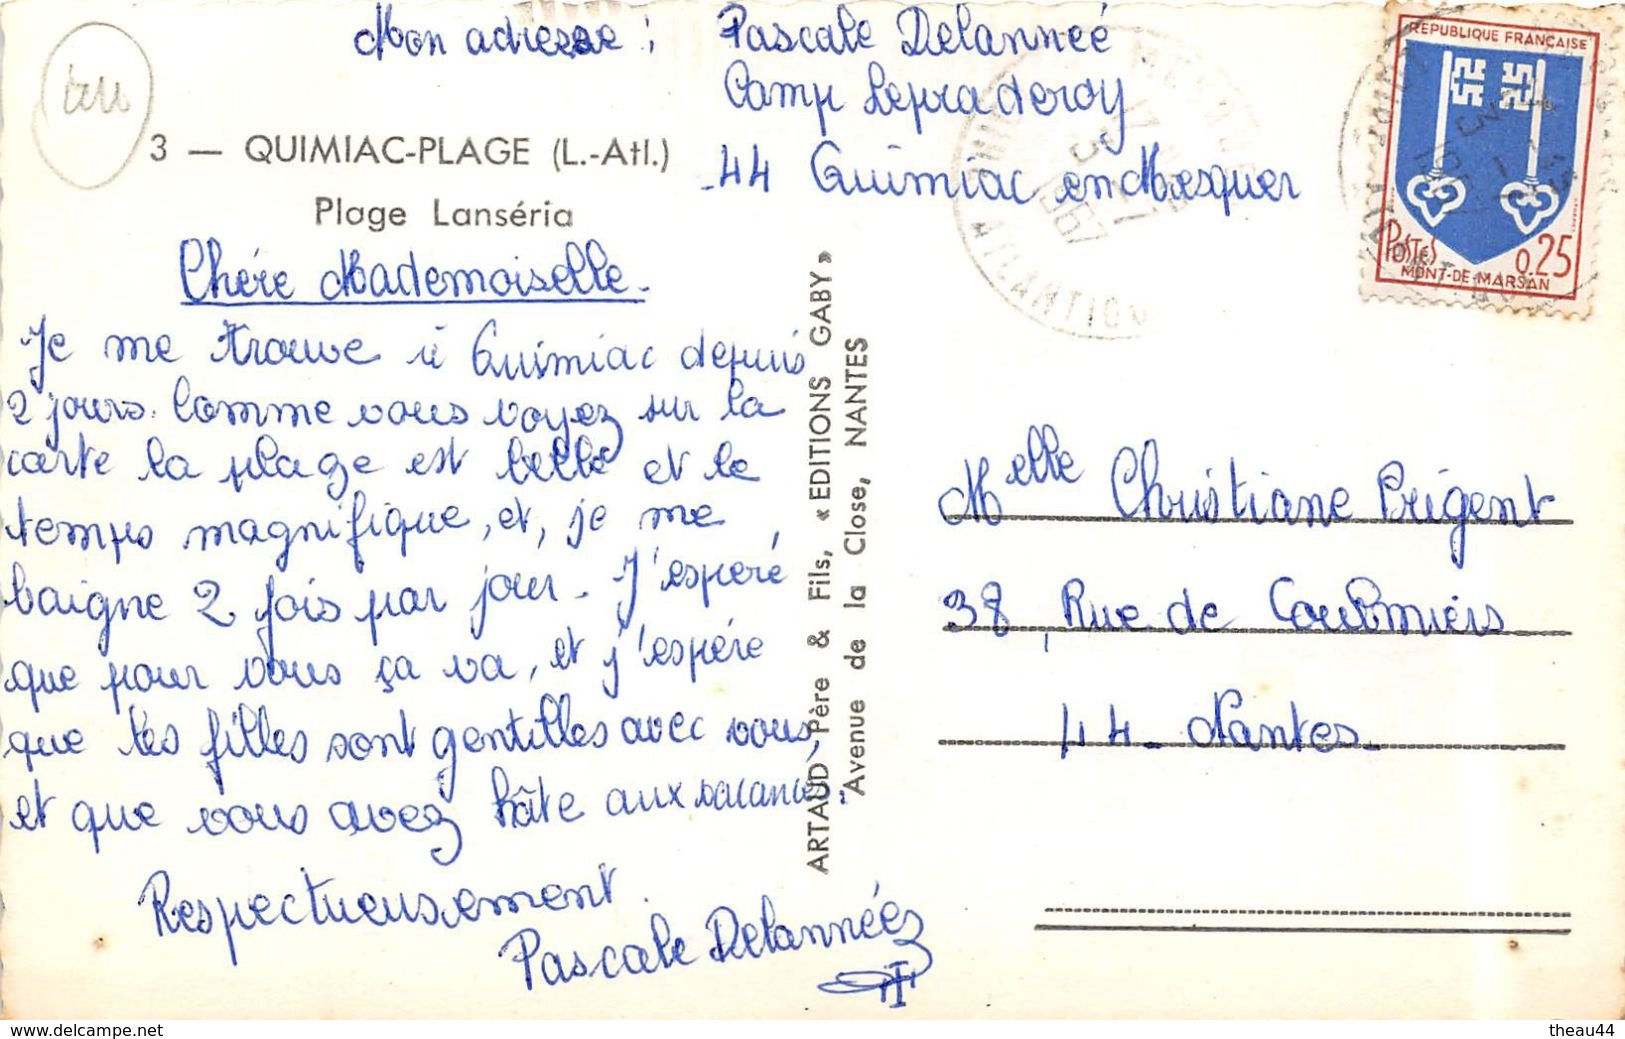 Mon adresse : Pascale Delanneé
Camp Lepraderoy
44 Quimiac en Mesquer
3 — QUIMIAC-PLAGE (L.-Atl.)
Plage Lanséria
Chére Mademoiselle.
Je me trouve à Quimiac depuis
2 jours. Comme vous voyez sur la
carte la plage est belle et le
temps magnifique, et, je me
baigne 2 fois par jour. J'espéré
que pour vous ça va, et j'espére
que les filles sont gentilles avec vous,
et que vous avez hâte aux vacances.
Respectueusement.
Pascale Delannéé
ARTAUD Père & Fils, « EDITIONS GABY »
Avenue de la Close, NANTES
REPUBLIQUE FRANÇAISE
POSTES 0,25
MONT-DE-MARSAN
Melle Christiane Prigent
38, Rue de Coulmiers
44 - Nantes -
www.delcampe.net
theau44